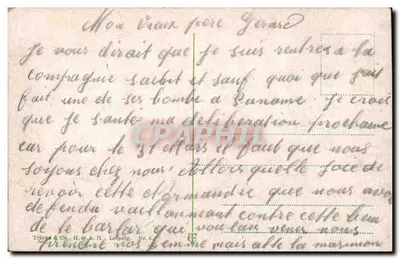 Mon vieux père Gérard
Je vous dirait que je suis rentrés a la
compagnie saint et sauf quoi que j'ait
fait une de ses bombe a Paname. Je crois
que je sante ma deliberation prochaine
car pour le 31 Mars il faut que nous
soyons chez nous. Allors quelle joie de
revoir cette Normandie que nous avons
defendu vaillanment contre cette
de le barbar que voulais venir nous
prendre nos femme mais able la
Trinks & Co., G. m. b. H., Leipzig.